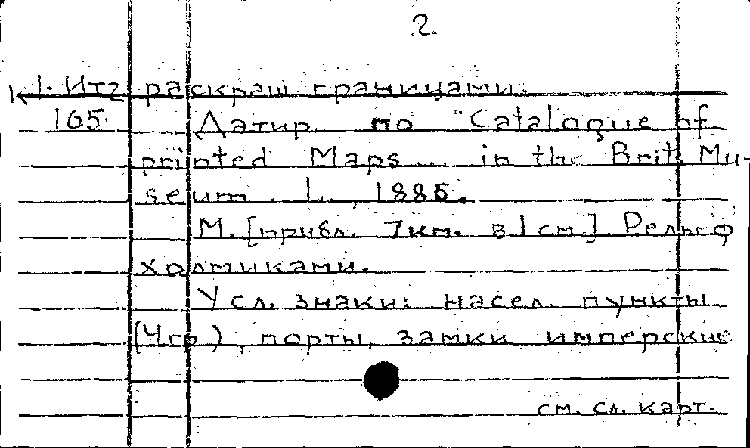 2.
К 1. Итг раскраш границами.
165 Датир по "Catalogue of
printed Maps... in the Brit. Mu-
seum. L., 1885.
М. [прибл. 7км. в 1 см.] Рельеф
холмиками.
Усл. знаки: насел. пункты
(4гр), порты, замки имперские
см. сл. карт.